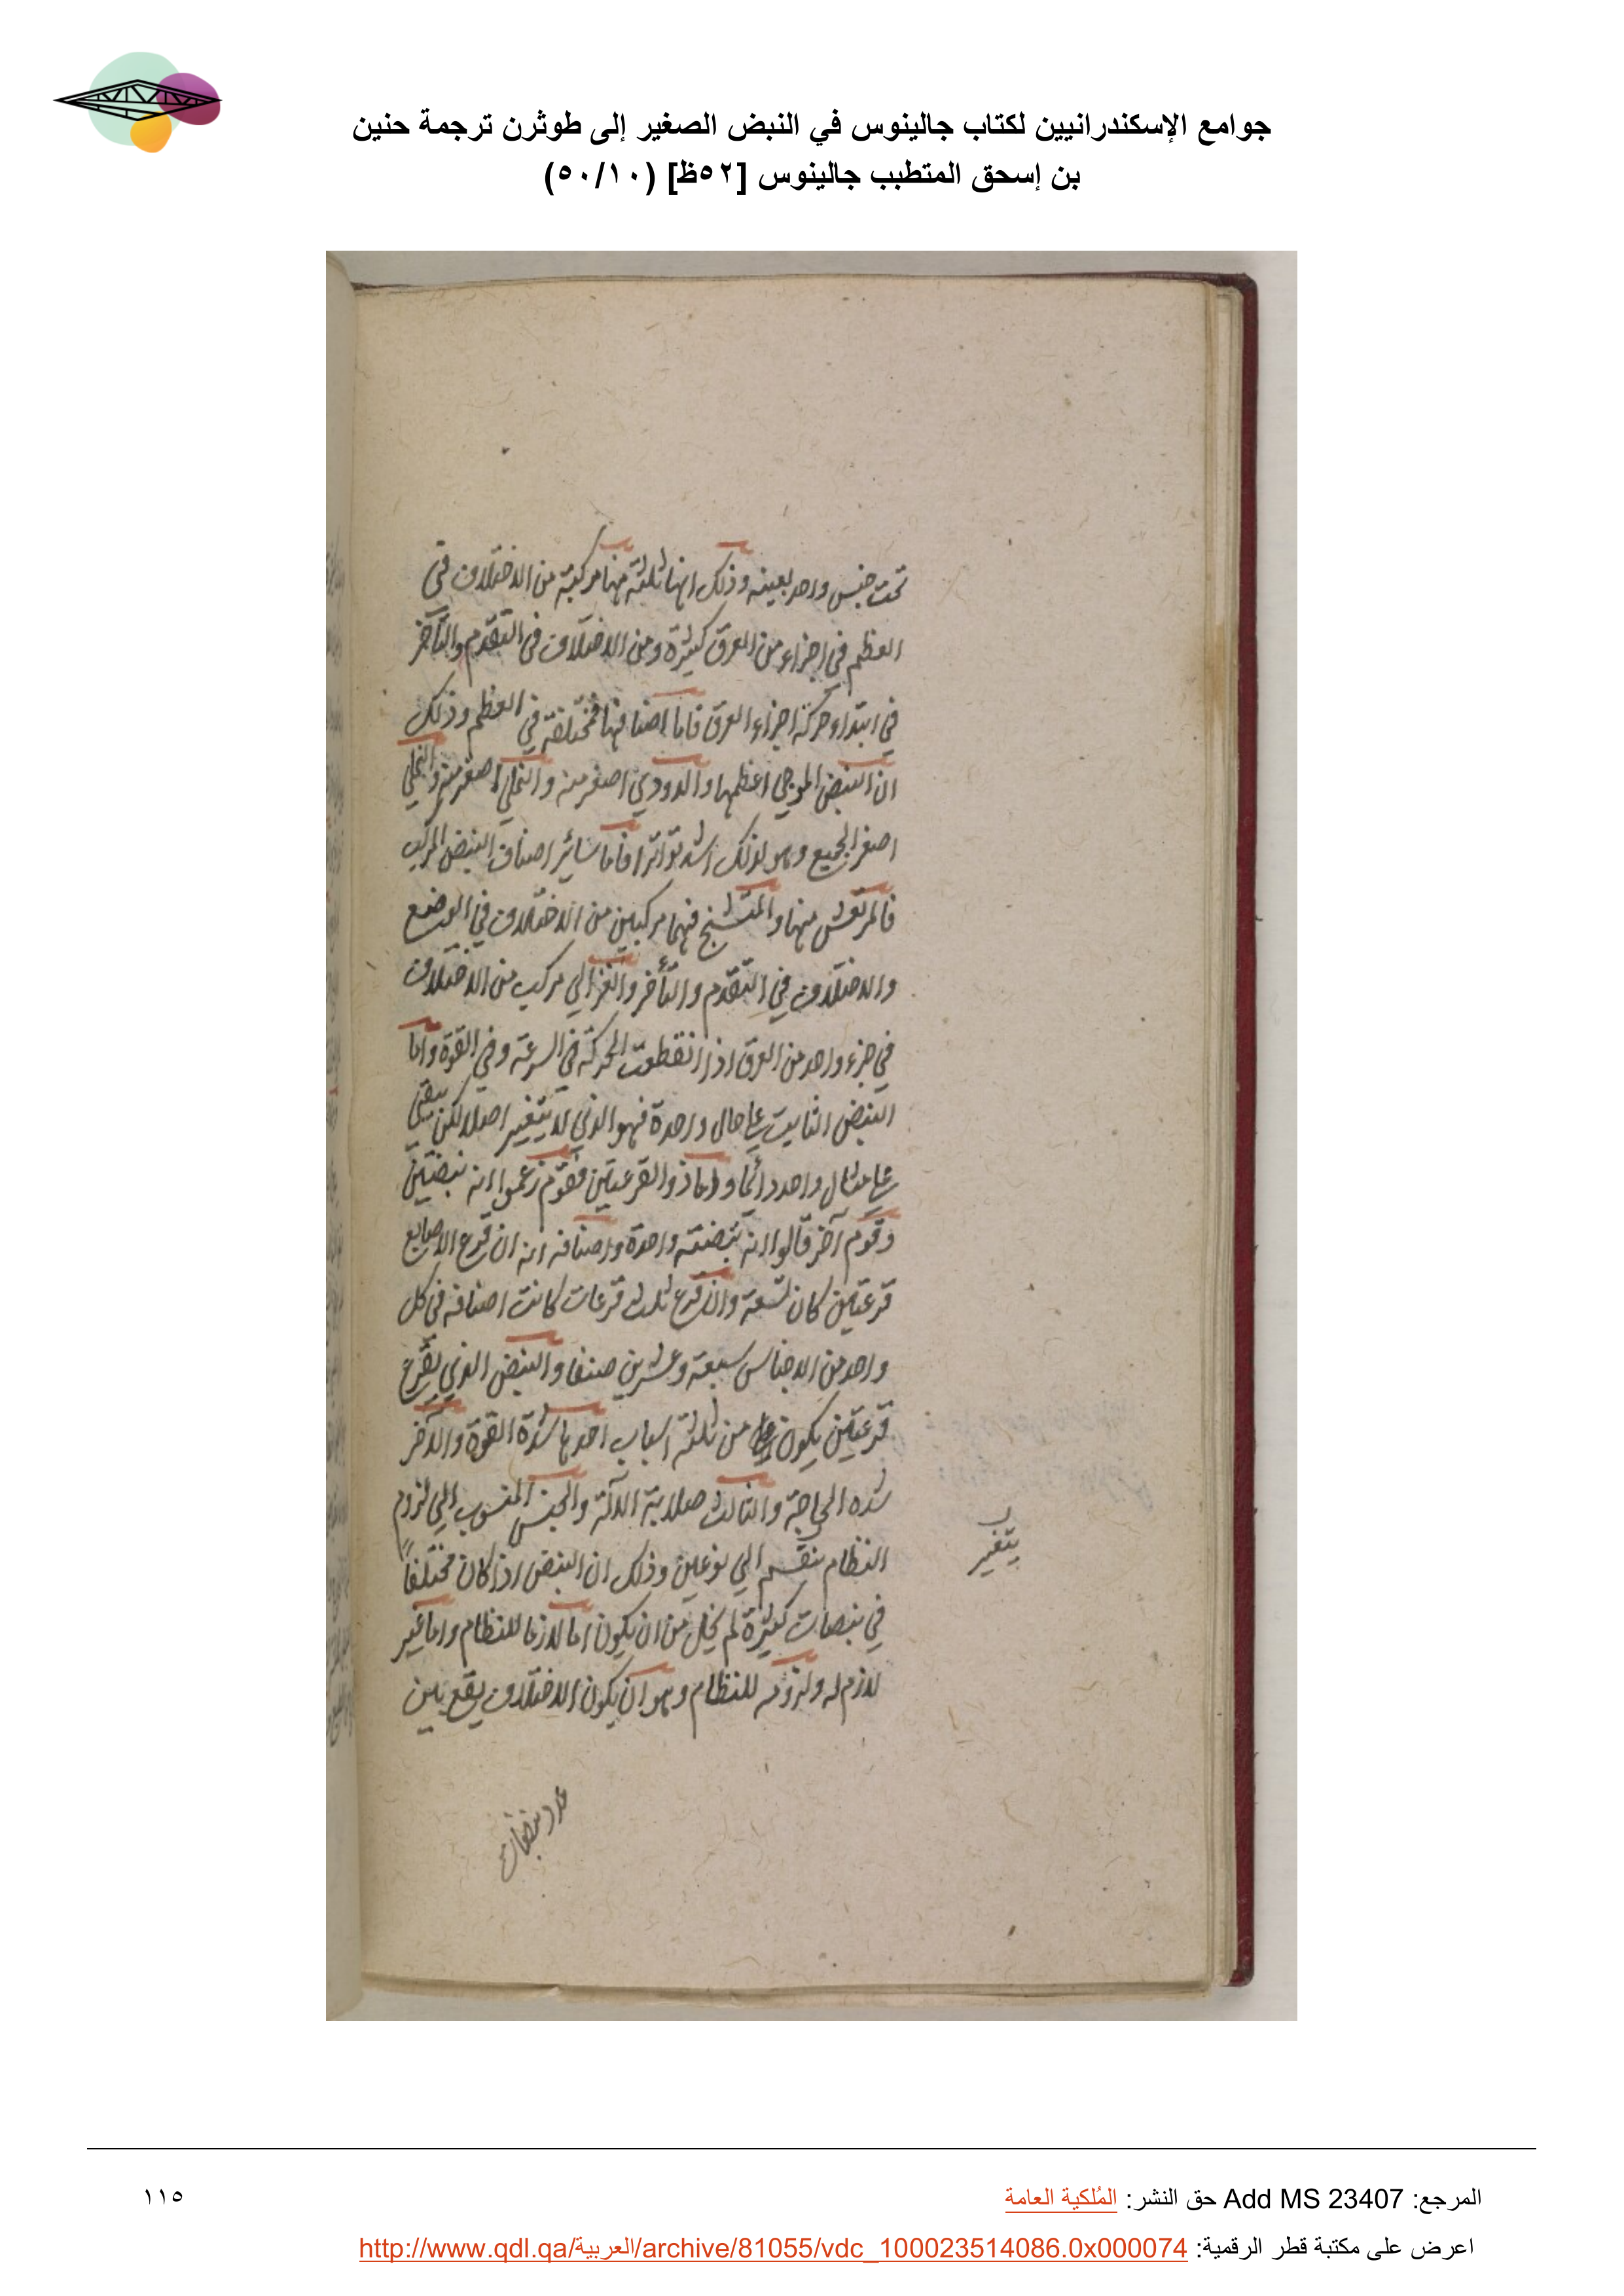 جوامع الإسكندرانيين لكتاب جالينوس في النبض الصغير إلى طوثرن ترجمة حنين
بن إسحق المتطبب جالينوس [٥٢ظ] (٥٠/١٠)
تحت جنس واحد بعينه وذلك انها ثلثة منها مركبة من الاختلاف في
العظم في اجزاء من العرق كثيرة ومن الاختلاف في التقدم والتأخر
في ابتداء حركة اجزاء العرق فاما اصنافها فمختلفة في العظم وذلك
ان النبض الموجي اعظمها والدودي اصغر منه والنملي اصغر
اصغر الجميع وهو لذلك اشد تواترا فاما سائر اصناف النبض المركب
فالمرتعش منها والمتشنج فهما مركبين من الاختلاف في الوضع
والاختلاف في التقدم والتأخر والغزالي مركب من الاختلاف
في جزء واحد من العرق اذا انقطعت الحركة في السرعة وفي القوة واما
النبض الثابت على حال واحدة فهو الذي لا يتغير اصلا لكن يبقى
على مثال واحد دائما واما ذو القرعتين فقوم زعموا انه نبضتين
وقوم آخر قالوا انه نبضة واحدة واصنافه انه ان قرع الاصابع
قرعتين كان تسعة وان قرع ثلث قرعات كانت اصنافه في كل
واحد من الاجناس سبعة وعشرين صنفا والنبض الذي يقرع
قرعتين يكون من ثلثة اسباب احدها شدة القوة والآخر
شده الحاجة والثالث صلابة الآلة والجنس المنسوب الي لزوم
النظام ينقسم الي نوعين وذلك ان النبض اذا كان مختلفاً
في نبضات كثيرة لم يخل من ان يكون اما لازما للنظام واما غير
لازم له ولزومه للنظام وهو ان يكون الاختلاف يقع بين
يتغير
عدد نبضات
المرجع: Add MS 23407 حق النشر: المُلكية العامة
١١٥
اعرض على مكتبة قطر الرقمية: http://www.qdl.qa/العربية/archive/81055/vdc_100023514086.0x000074